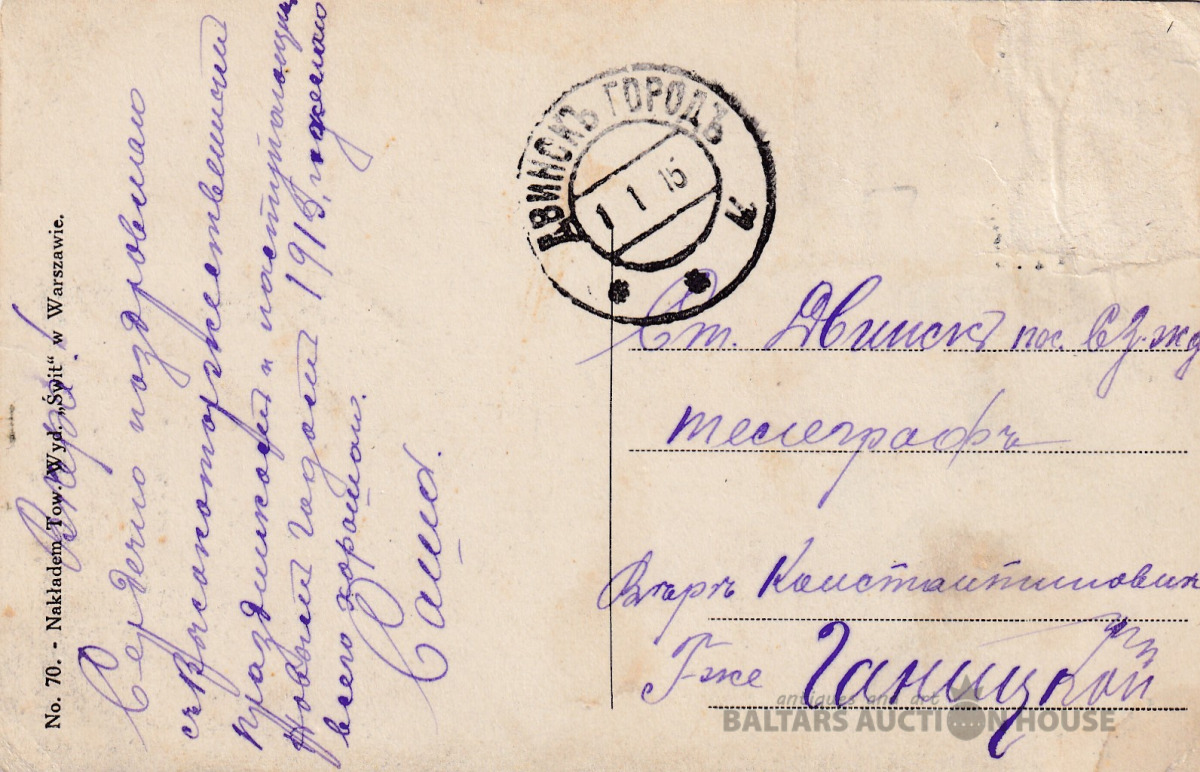 No. 70. - Nakładem Tow. Wyd. „Świt“ w Warszawie.
Вѣрѣ!
Сердечно поздровляю
съ высокоторжественный
праздникой и наступающимъ
Новый годомъ 1915, желаю
всего хорошаго.
Саша.
ДВИНСКЪ ГОРОДЪ
1 1 15
Ст. Двинскъ пос.
телеграфъ
Константиновнѣ
Г-же Ганицкой
antiques and art
BALTARS AUCTION HOUSE